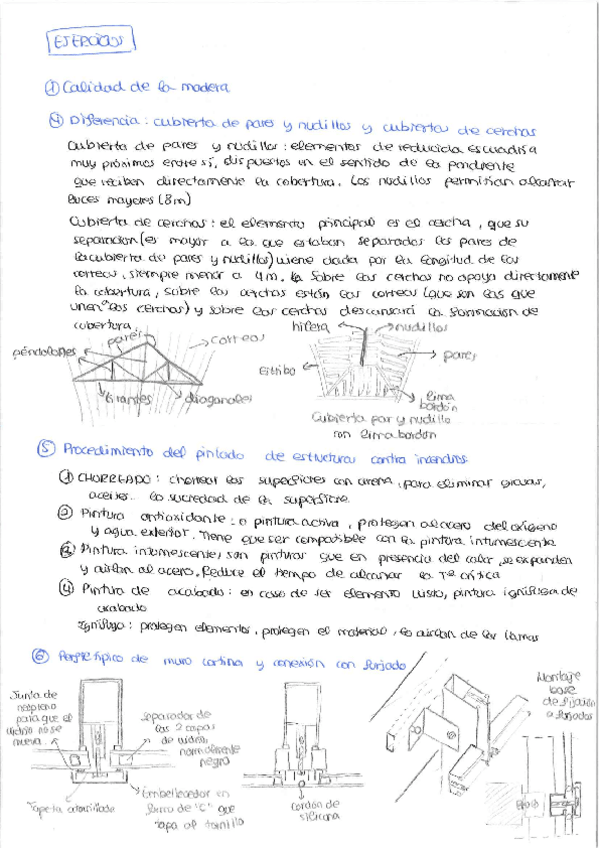 EJERCICIOS
① Calidad de la madera
④ Diferencia: cubierta de pares y nudillos y cubierta de cerchas
Cubierta de pares y nudillos: elementos de reducida escuadría
muy próximos entre sí, dispuestos en el sentido de la pendiente
que reciben directamente la cobertura. Los nudillos permitían alcanzar
luces mayores (8m)
Cubierta de cerchas: el elemento principal es el cercha, que su
separación (es mayor a la que estaban separados los pares de
la cubierta de pares y nudillos) viene dada por la longitud de las
correas, siempre menor a 4m. Sobre las cerchas no apoya directamente
la cobertura, sobre las cerchas están las correas (que son las que
unen las cerchas) y sobre las cerchas descansará la formación de
cobertura.
péndolones
pares
correas
tirantes
diagonales
hilera
nudillos
pares
Estribo
lima
bordón
Cubierta par y nudillo
con lima bordón
⑤ Procedimiento del pintado de estructura contra incendios
① CHORREADO: chorrear las superficies con arena, para eliminar grasas,
aceites.. la suciedad de la superficie
② Pintura antioxidante: o pintura activa, protegen al acero del oxígeno
y agua exterior. Tiene que ser compatible con la pintura intumescente
③ Pintura intumescente, son pinturas que en presencia del calor, se expanden
y aislan al acero. Reduce el tiempo de alcanzar la Tª crítica
④ Pintura de acabado: en caso de ser elemento visto, pintura ignífuga de
acabado
Ignífugo: protegen elementos, protegen el material, lo aislan de las llamas
⑥ Perfil típico de muro cortina y conexión con forjado
Junta de
neopreno
para que el
vidrio no se
mueva
separador de
las 2 capas
de vidrio,
normalmente
negro
Tapeta atornillada
Embellecedor en
forma de "C" que
tapa al tornillo
cordón de
silicona
Montaje
base
de fijación
a forjados